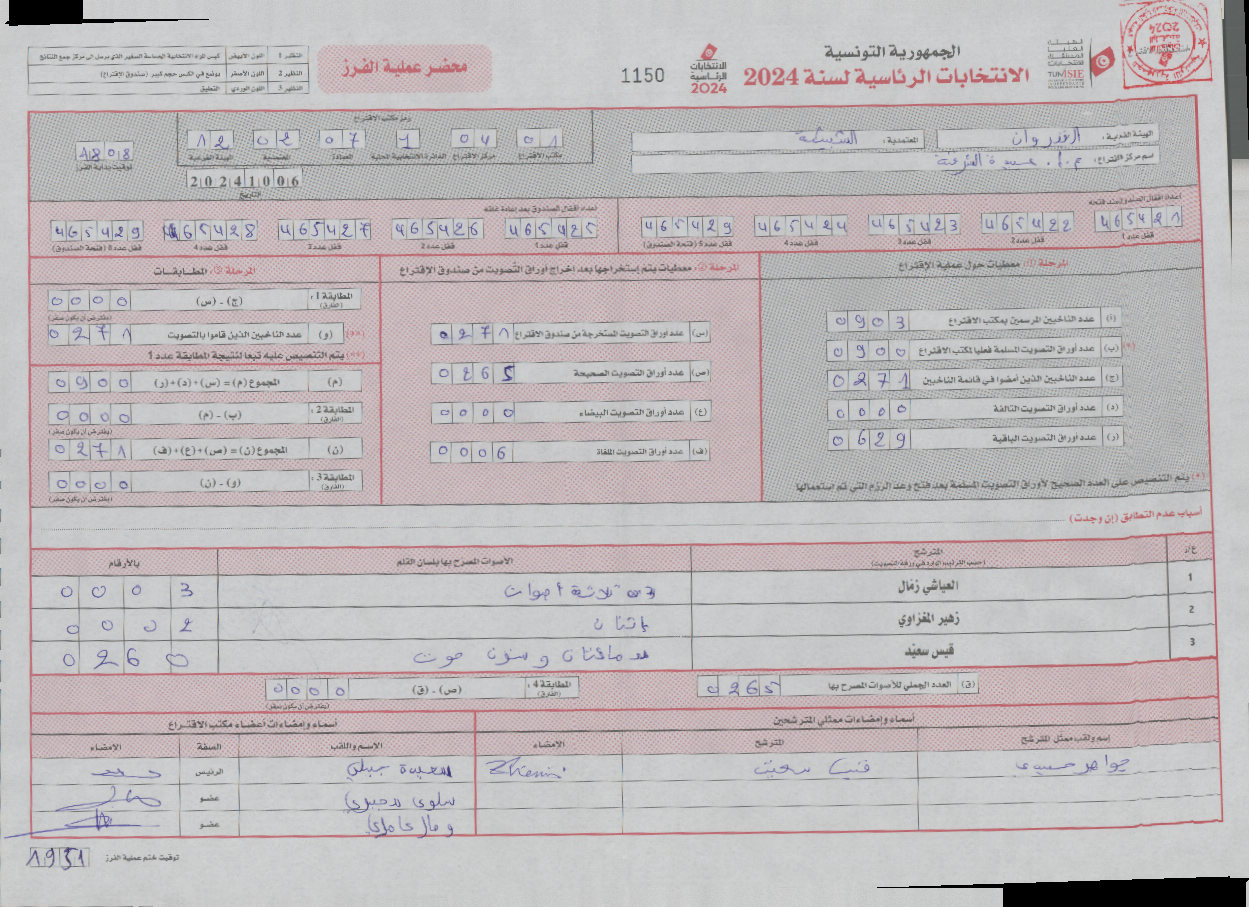 الجمهورية التونسية
الانتخابات الرئاسية لسنة 2024
الهيئة العليا المستقلة للانتخابات
TUNISIE
الانتخابات الرئاسية 2024
1150
محضر عملية الفرز
النظير 1 اللون الأبيض
النظير 2 اللون الأصفر يوضع في الكيس حجم كبير (صندوق الاقتراع)
النظير 3 اللون الوردي التعليق
الهيئة الفرعية : القيروان المعتمدية : الشبيكة
اسم مركز الاقتراع :
رمز مكتب الاقتراع
01 04 1 07 02 12
مكتب الاقتراع مركز الاقتراع الدائرة الانتخابية المحلية العمادة المعتمدية الهيئة الفرعية
20241006
التاريخ
1808
توقيت بداية الفرز
أعداد أقفال الصندوق عند فتحه
465421 465422 465423 465424 465429
قفل عدد 1 قفل عدد 2 قفل عدد 3 قفل عدد 4 قفل عدد 5 (فتحة الصندوق)
أعداد أقفال الصندوق بعد إعادة غلقه
465425 465426 465427 465428 465429
قفل عدد 1 قفل عدد 2 قفل عدد 3 قفل عدد 4 قفل عدد 5 (فتحة الصندوق)
المرحلة (1): معطيات حول عملية الاقتراع
(أ) عدد الناخبين المرسمين بمكتب الاقتراع 0903
(*) (ب) عدد أوراق التصويت المسلمة فعليا لمكتب الاقتراع 0900
(ج) عدد الناخبين الذين أمضوا في قائمة الناخبين 0271
(د) عدد أوراق التصويت التالفة 0000
(ر) عدد أوراق التصويت الباقية 0629
(*) يتم التنصيص على العدد الصحيح لأوراق التصويت المسلمة بعد فتح وعد الرزم التي تم استعمالها
المرحلة (2): معطيات يتم إستخراجها بعد اخراج أوراق التصويت من صندوق الاقتراع
(س) عدد أوراق التصويت المستخرجة من صندوق الاقتراع 0271
(ص) عدد أوراق التصويت الصحيحة 0265
(ع) عدد أوراق التصويت البيضاء 0000
(ف) عدد أوراق التصويت الملغاة 0006
المرحلة (3): المطابقات
المطابقة 1 : (الفارق) (ج) - (س) 0000
(يفترض أن يكون صفر)
(**) (و) عدد الناخبين الذين قاموا بالتصويت 0271
(**) يتم التنصيص عليه تبعا لنتيجة المطابقة عدد 1
(م) المجموع (م) = (س)+(د)+(ر) 0900
المطابقة 2 : (الفارق) (ب) - (م) 0000
(يفترض أن يكون صفر)
(ن) المجموع (ن) = (ص)+(ع)+(ف) 0271
المطابقة 3 : (الفارق) (و) - (ن) 0000
(يفترض أن يكون صفر)
أسباب عدم التطابق (إن وجدت)
ع/ر المترشح (حسب الترتيب الوارد في ورقة التصويت) الأصوات المصرح بها بلسان القلم بالأرقام
1 العياشي زمّال ثلاثة أصوات 0003
2 زهير المغزاوي إثنان 0002
3 قيس سعيّد مائتان وستون صوت 0260
(ق) العدد الجملي للأصوات المصرح بها 0265
المطابقة 4 : (الفارق) (ص) - (ق) 0000
(يفترض أن يكون صفر)
أسماء وإمضاءات ممثلي المترشحين
إسم ولقب ممثل المترشح المترشح الامضاء
قيس سعيد
أسماء وإمضاءات أعضاء مكتب الاقتراع
الاسم واللقب الصفة الامضاء
الرئيس
سلوى عضو
عضو
توقيت ختم عملية الفرز 1931